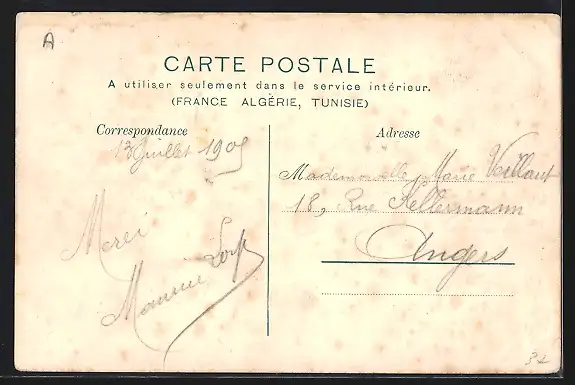 A
CARTE POSTALE
A utiliser seulement dans le service intérieur.
(FRANCE ALGÉRIE, TUNISIE)
Correspondance
Adresse
13 Juillet 1905
Mademoiselle Marie Veillaut
18, Rue Kellermann
Angers
Merci
Maurice